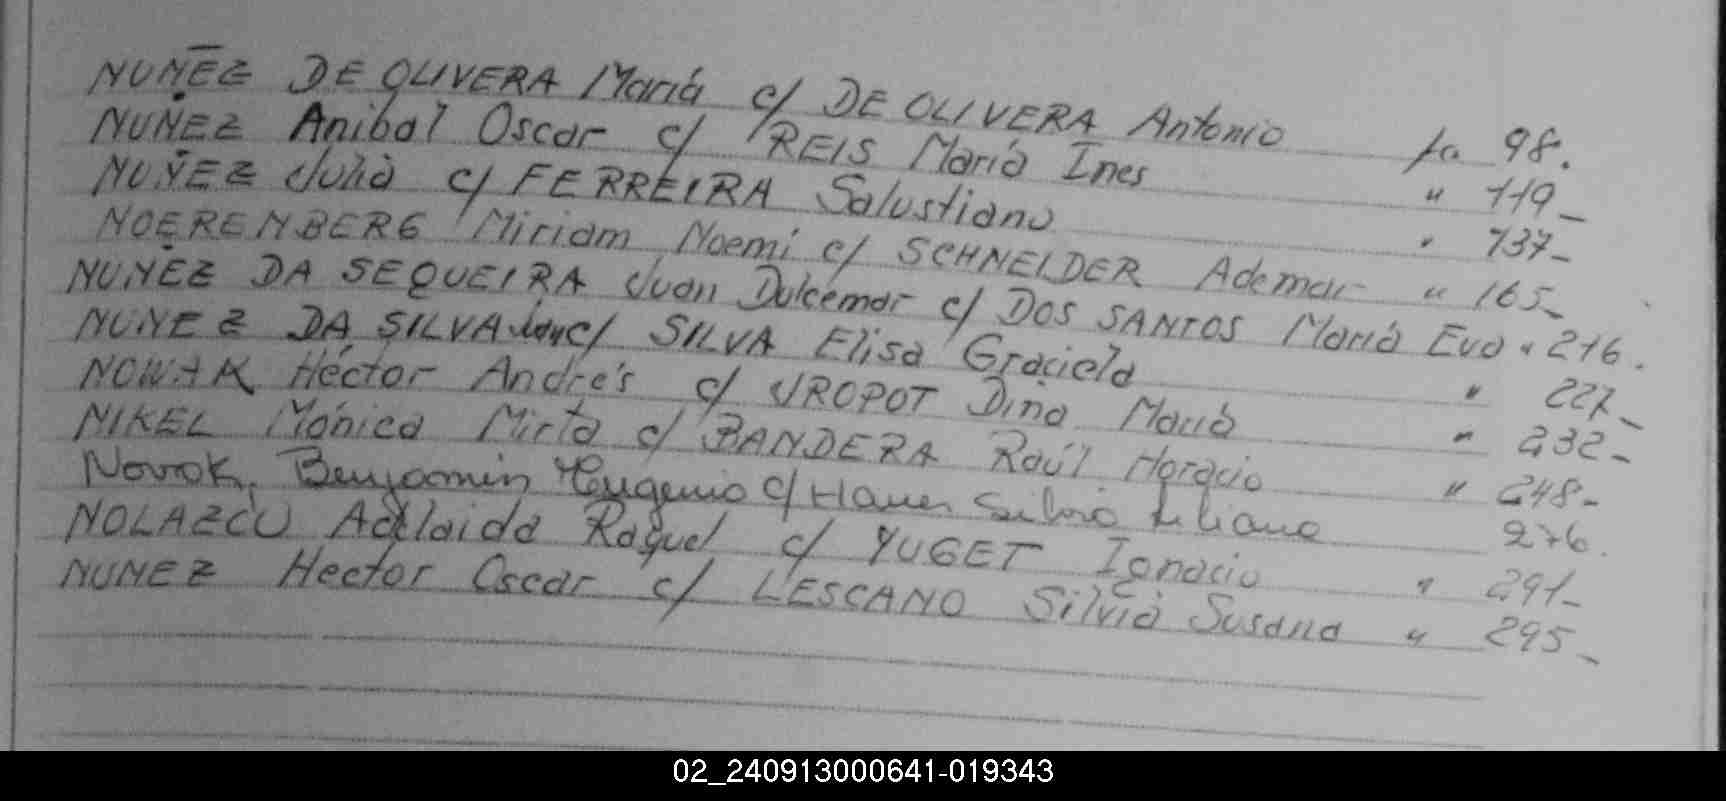 NUÑEZ DE OLIVERA María c/ DE OLIVERA Antonio fo 98.
NUÑEZ Anibal Oscar c/ REIS María Ines " 119_
NUÑEZ Julia c/ FERREIRA Salustiano " 137_
NOERENBERG Miriam Noemí c/ SCHNEIDER Ademar " 165_
NUÑEZ DA SEQUEIRA Juan Dulcemar c/ DOS SANTOS María Eva " 216.
NUNEZ DA SILVA c/ SILVA Elisa Graciela " 227_
NOWAK Héctor Andrés c/ UROPOT Dina María " 232_
NIKEL Mónica Mirta c/ BANDERA Raúl Horacio " 248-
Novok, Benjamin Eugenio c/ Silvia Liliana 276.
NOLAZCO Adelaida Raquel c/ YUGET Ignacio " 291_
NUNEZ Hector Oscar c/ LESCANO Silvia Susana " 295_
02_240913000641-019343